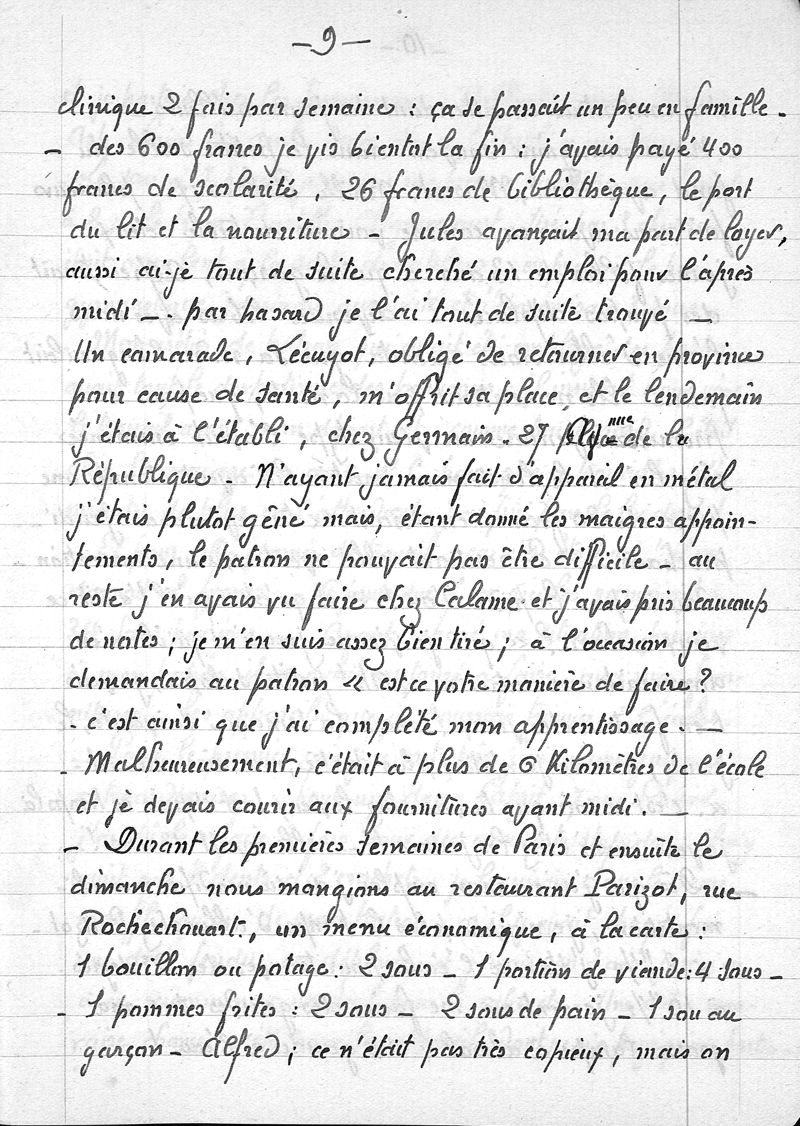 — 9 —
clinique 2 fois par semaine : ça se passait un peu en famille -
- des 600 francs je vis bientot la fin : j'avais payé 400
francs de scolarité, 26 francs de bibliothèque, le port
du lit et la nourriture - Jules avançait ma part de loyer,
aussi ai-je tout de suite cherché un emploi pour l'après
midi -. par hasard je l'ai tout de suite trouvé —
Un camarade, Lécuyot, obligé de retourner en province
pour cause de santé, m'offrit sa place, et le lendemain
j'étais à l'établi, chez Germain. 27 de la
République - N'ayant jamais fait d'appareil en métal
j'étais plutot gêné mais, étant donné les maigres appoin-
tements, le patron ne pouvait pas être difficile - au
reste j'en avais vu faire chez Calame et j'avais pris beaucoup
de notes ; je m'en suis assez bien tiré ; à l'occasion je
demandais au patron « est ce votre manière de faire ?
- c'est ainsi que j'ai complété mon apprentissage. —
- Malheureusement, c'était à plus de 6 Kilomètres de l'école
et je devais courir aux fournitures avant midi. —
- Durant les premières semaines de Paris et ensuite le
dimanche nous mangions au restaurant Parizot, rue
Rochechouart, un menu économique, à la carte :
1 bouillon ou potage : 2 sous - 1 portion de viande : 4 sous -
- 1 pommes frites : 2 sous - 2 sous de pain - 1 sou au
garçon - Alfred ; ce n'était pas très copieux, mais on